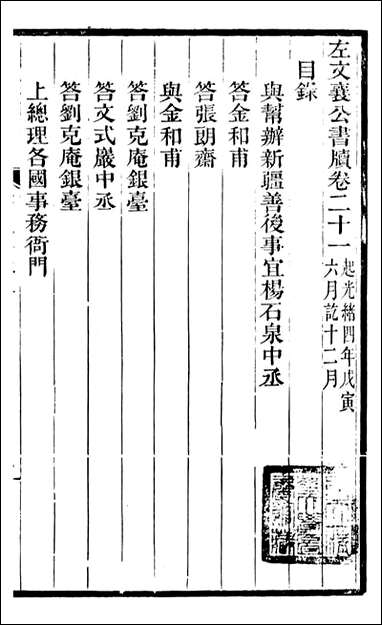 左文襄公書牘卷二十一起光緒四年戊寅六月訖十二月
目錄
與幫辦新疆善後事宜楊石泉中丞
答金和甫
答張朗齋
與金和甫
答劉克庵銀臺
答文式巖中丞
答劉克庵銀臺
上總理各國事務衙門